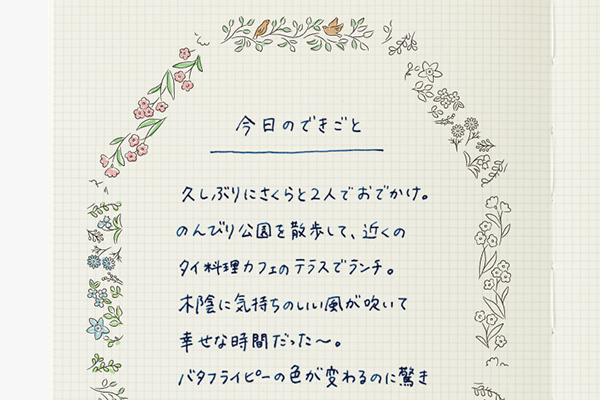 今日のできごと
久しぶりにさくらと2人でおでかけ。
のんびり公園を散歩して、近くの
タイ料理カフェのテラスでランチ。
木陰に気持ちのいい風が吹いて
幸せな時間だった〜。
バタフライピーの色が変わるのに驚き